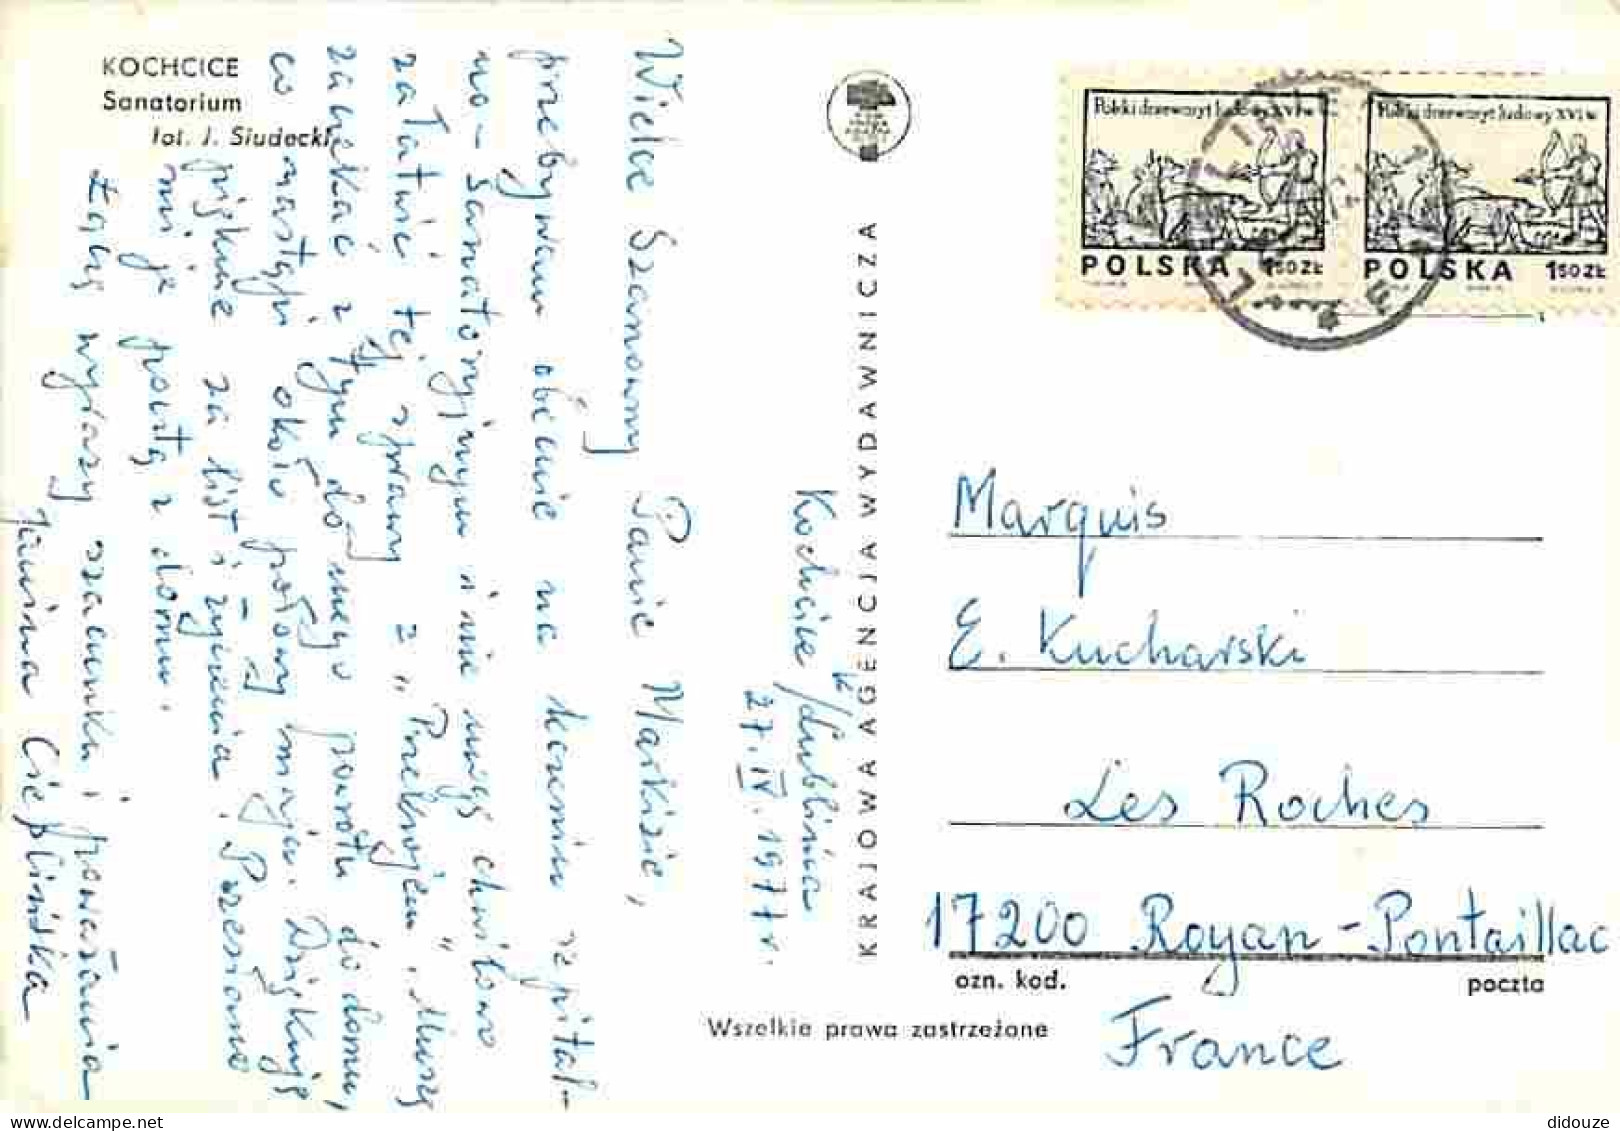 KOCHCICE
Sanatorium
fot. J. Siudecki
Kochcice k/Lublińca
27.IV.1977 r.
Wielce Szanowny Panie Markizie,
przebywam obecnie na leczeniu szpital-
no-sanatoryjnym i nie mogę chwilowo
załatwić tej sprawy z „Przekrojem". Muszę
zaczekać z tym do mego powrotu do domu,
co nastąpi około połowy maja. Dziękuję
pięknie za list i życzenia. Przesłano
mi je pocztą z domu.
Łączę wyrazy szacunku i poważania
Janina Cieplińska
KRAJOWA AGENCJA WYDAWNICZA
Wszelkie prawa zastrzeżone
Polski drzeworyt ludowy XVI w.
POLSKA 1 50 ZŁ
Polski drzeworyt ludowy XVI w.
POLSKA 1 50 ZŁ
Marquis
E. Kucharski
Les Roches
17200 Royan-Pontaillac
ozn. kod. poczta
France
https://www.delcampe.net
didouze